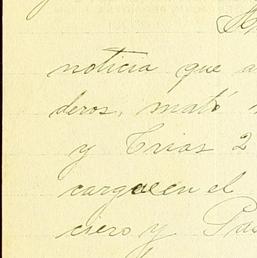 noticia que a
deros, mató
y Trias 2
cargue en el
ciero y Pas